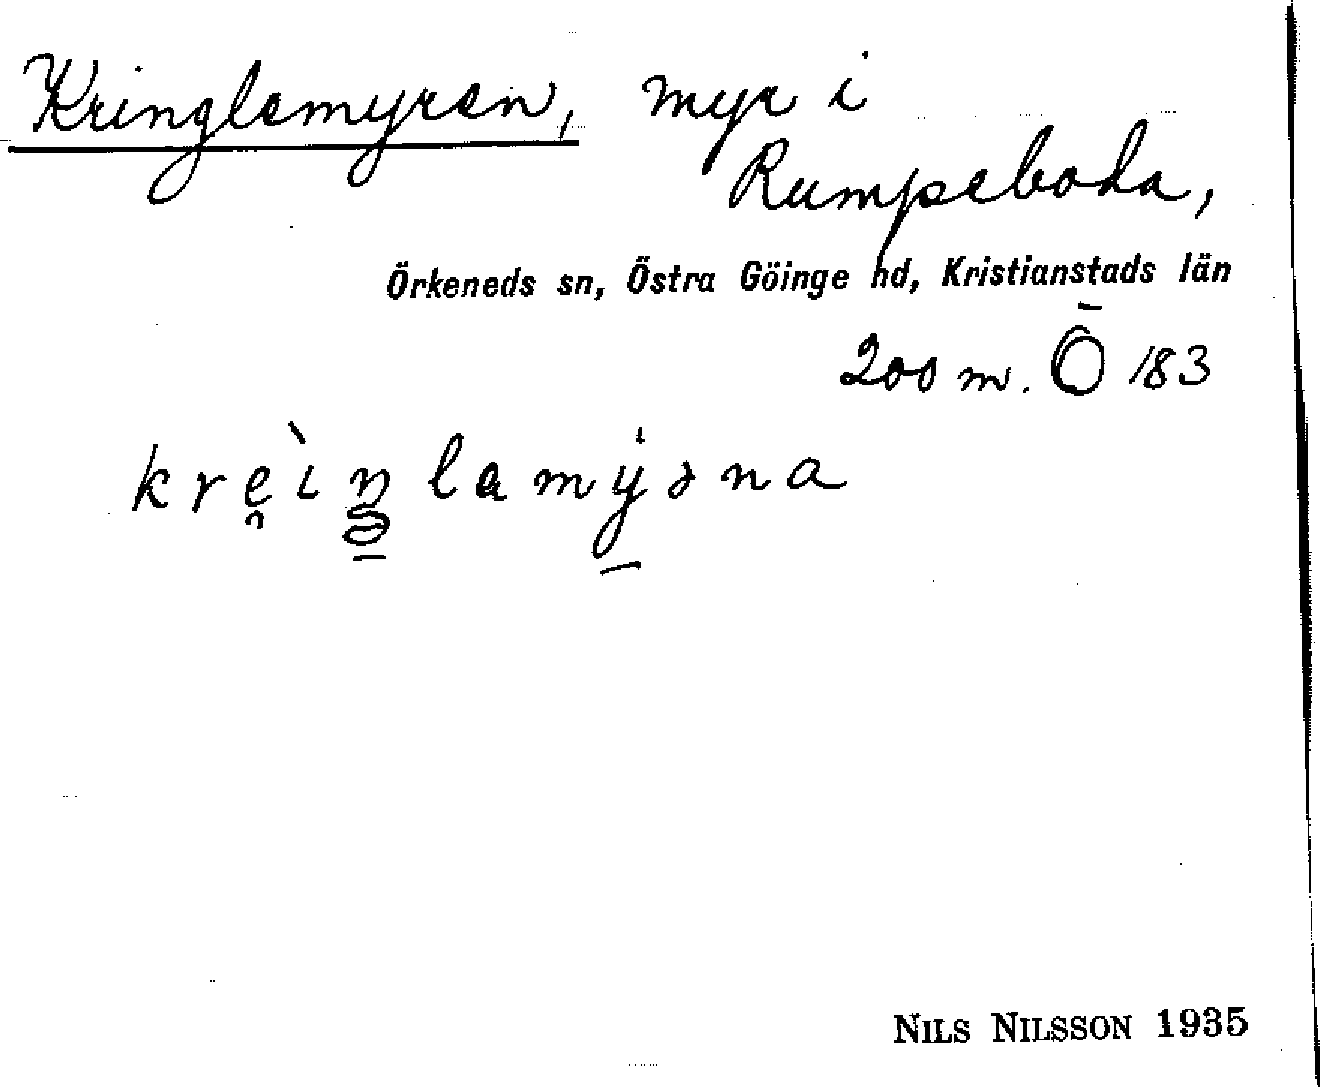 Kringlemyren, myr i
Rumpeboda,
Örkeneds sn, Östra Göinge hd, Kristianstads län
200 m. Ö 183
NILS NILSSON 1935